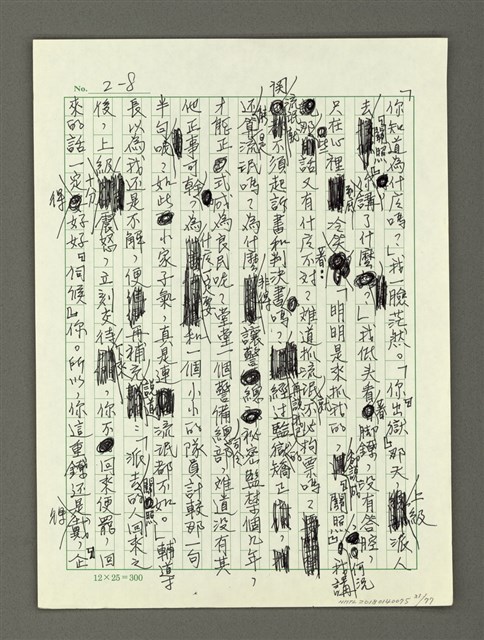 No. 2-8
「你知道為什麼嗎？」我一臉茫然。「你出獄那天，上級派人
去『關照』你講了什麼？」我低頭看看腳鐐，沒有答腔，
只在心裡冷笑：「明明是來抓我的，『關照』，何況我講
那些話又有什麼不對？難道抓流氓不必拘票嗎？
不須起訴書和判決書嗎？經過監獄矯正，
還算流氓嗎？為什麼非得讓警總秘密監禁個几年，
才能正式成為良民呢？堂堂一個警備總部，難道沒有其
他正事可幹，為什麼一定要和一個小小的隊員計較那一句
半句呢？如此小家子氣，真是連流氓都不如。」輔導
長以為我還是不解，便再補充說道：「派去『關照』的人回來之
後，上級十分震怒，立刻交待，你不回來便罷，回
來的話一定得好好『伺候』你。所以，你這重鐐還是得戴，正
12×25=300